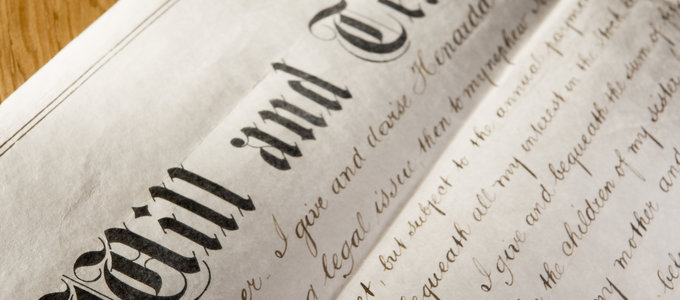 Will and Te
er. I give and devise Henaida
g legal issue then to my nephew
t, but subject to the annual payment
equeath all my interest in the stock
I give and bequeath the sum of
the children of my sister
my mother and